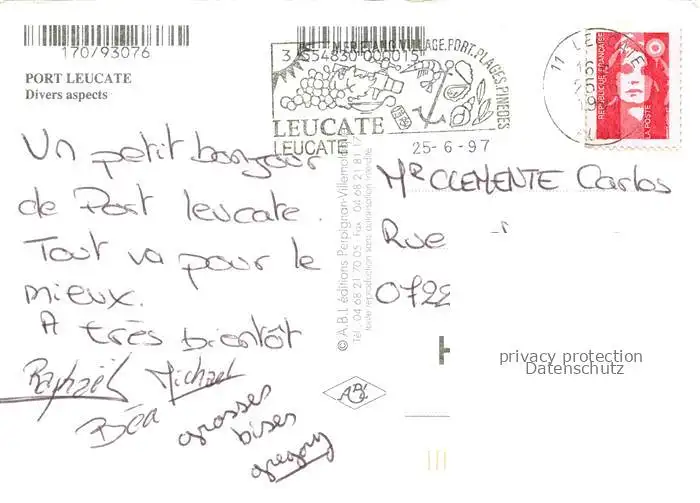 170/93076
PORT LEUCATE
Divers aspects
Un petit bonjour
de Port leucate.
Tout va pour le
mieux.
A très bientôt
Raphaël Michael
Béa grosses
bises
gregory
MER, ETANG, VILLAGE, PORT, PLAGES, PINEDES
LEUCATE
LEUCATE
25-6-97
11 LEUCATE
REPUBLIQUE FRANÇAISE
LA POSTE
© A.B.L éditions Perpignan-Villemolaque
Tél. 04 68 21 70 05 Fax 04 68 21 81 17
toute reproduction sans autorisation interdite
ABL
Mr CLEMENTE Carlos
Rue
0722
privacy protection
Datenschutz